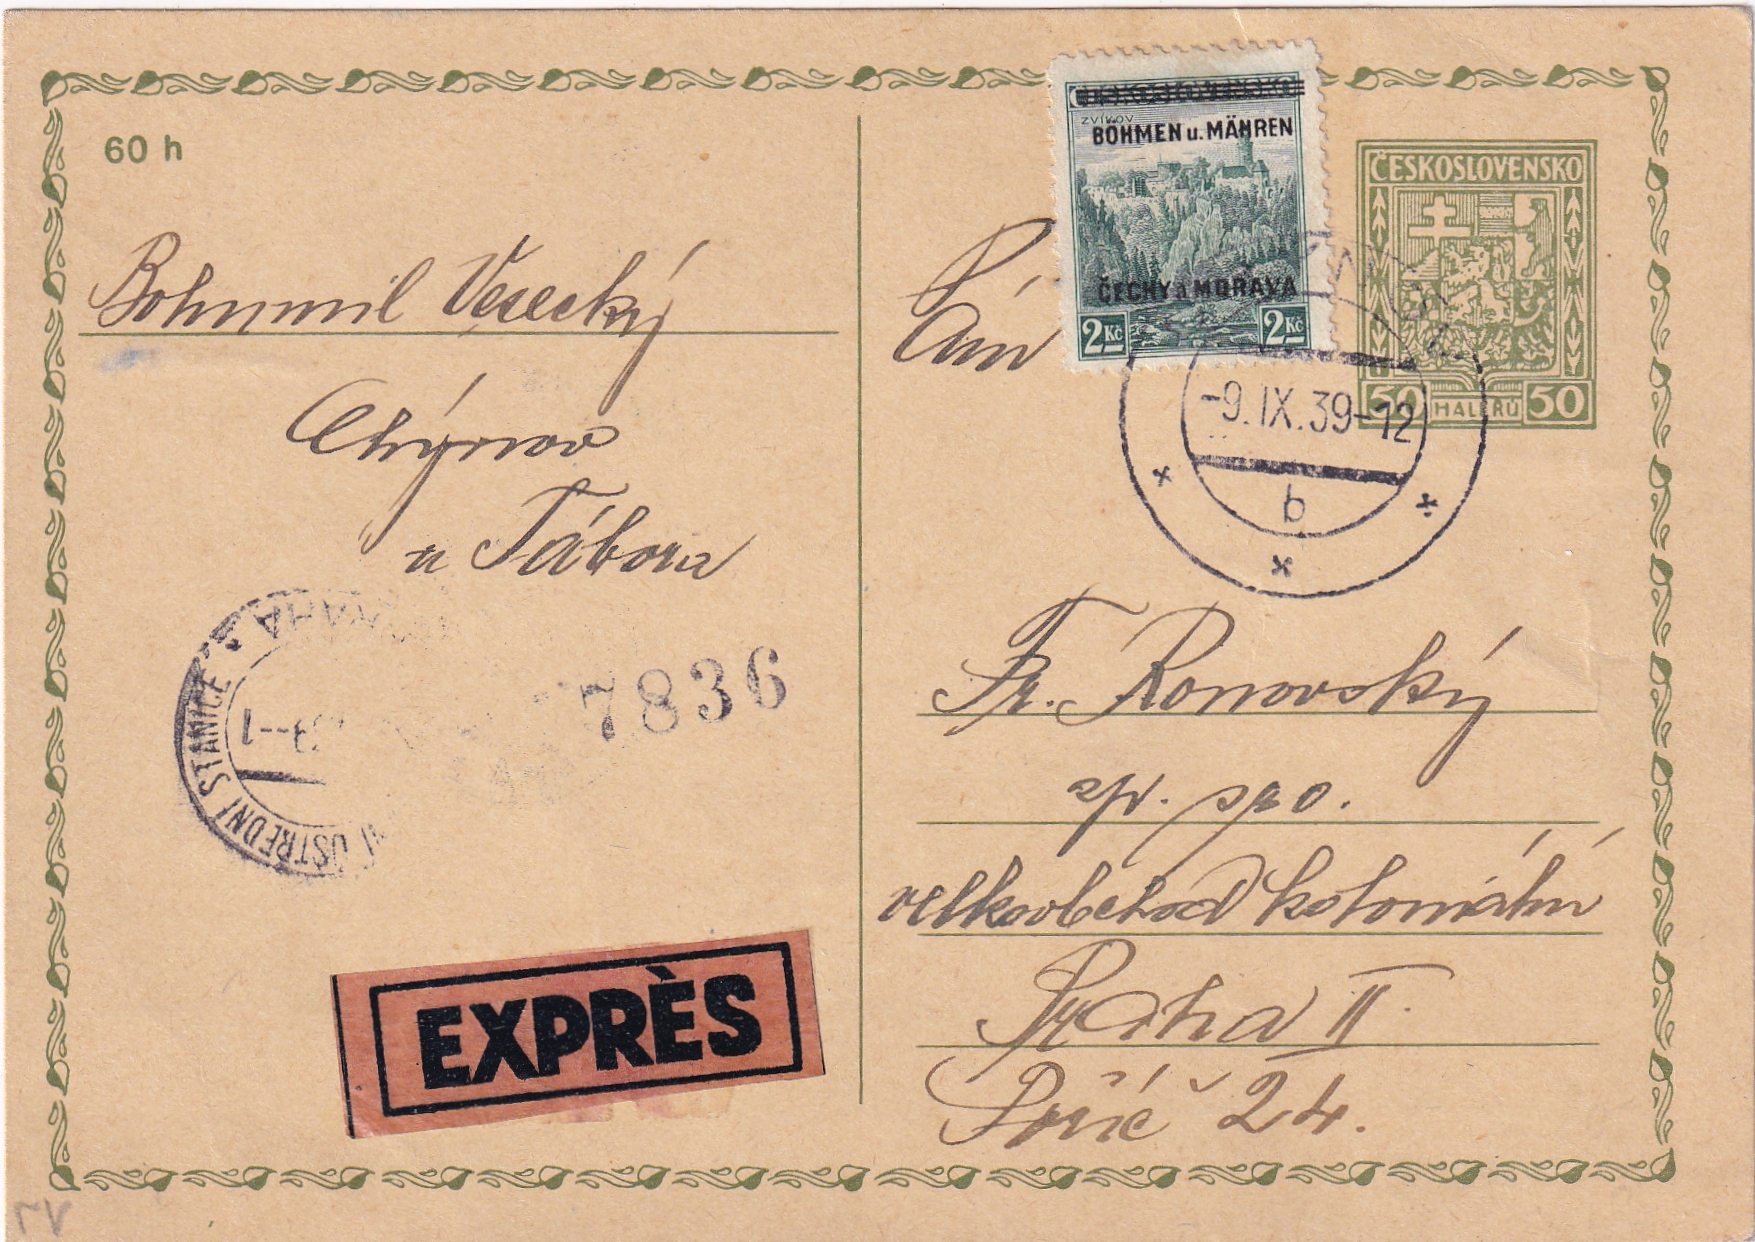 60 h
Bohumil Veselký
Chýnov
u Tábora
PRAHA
ÚSTŘEDNÍ STANICE
7836
EXPRÈS
ZVÍKOV
BÖHMEN u. MÄHREN
ČECHY a MORAVA
2 Kč 2 Kč
ČESKOSLOVENSKO
50 HALÉŘŮ 50
-9.IX.39-12
b
Pán
Fr. Ronovský
velkoobchod koloniální
Praha II.
Poříč 24.